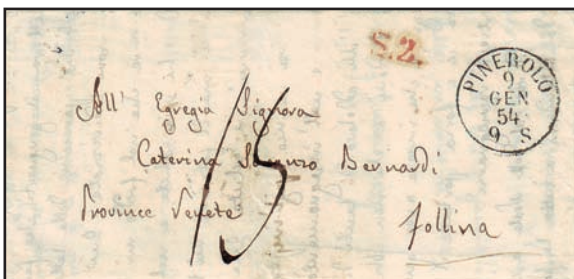 S.2.
PINEROLO
9
GEN
54
9 S
All' Egregia Signora
15
Caterina Bernardi
Province Venete
Follina